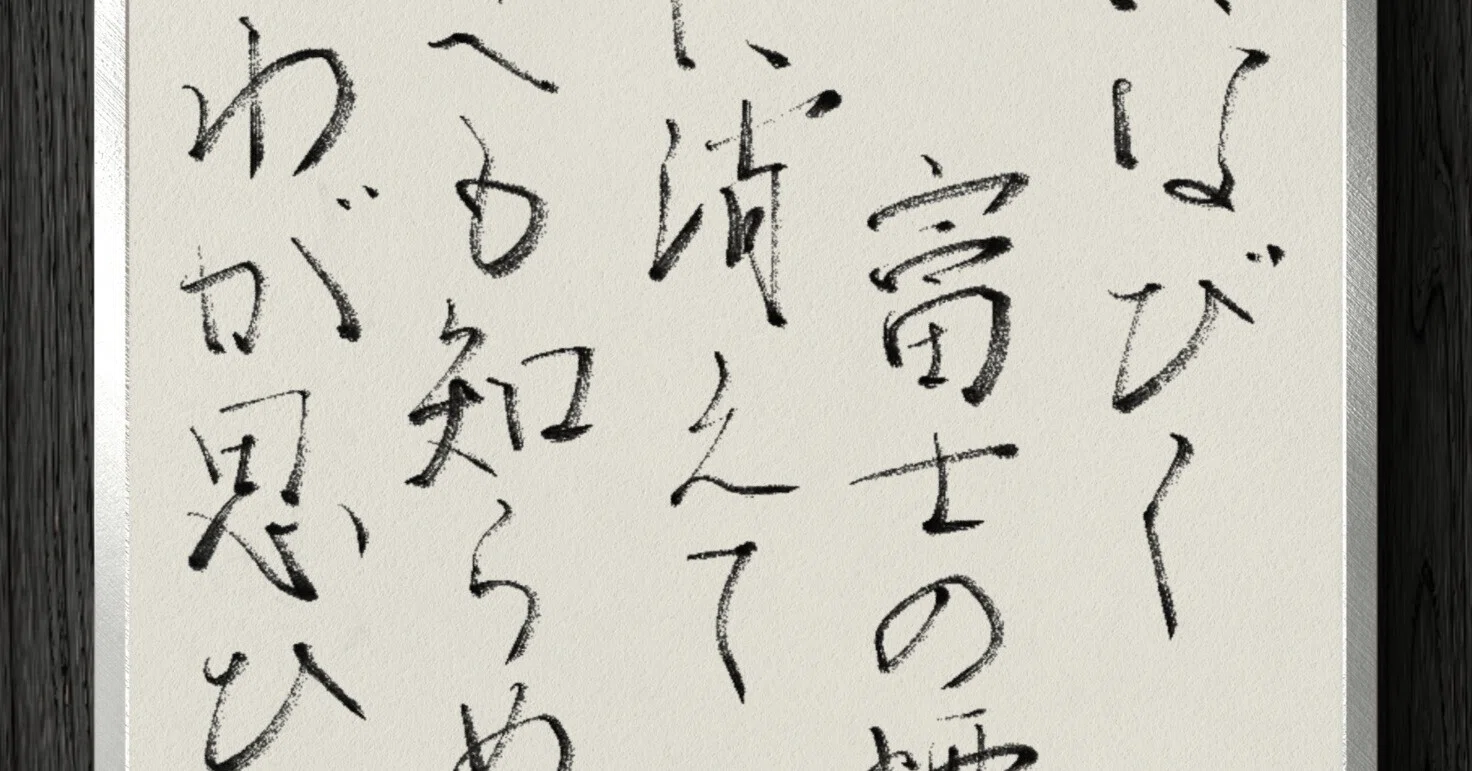 なびく
富士の
消えて
へも知ら
わが思ひ